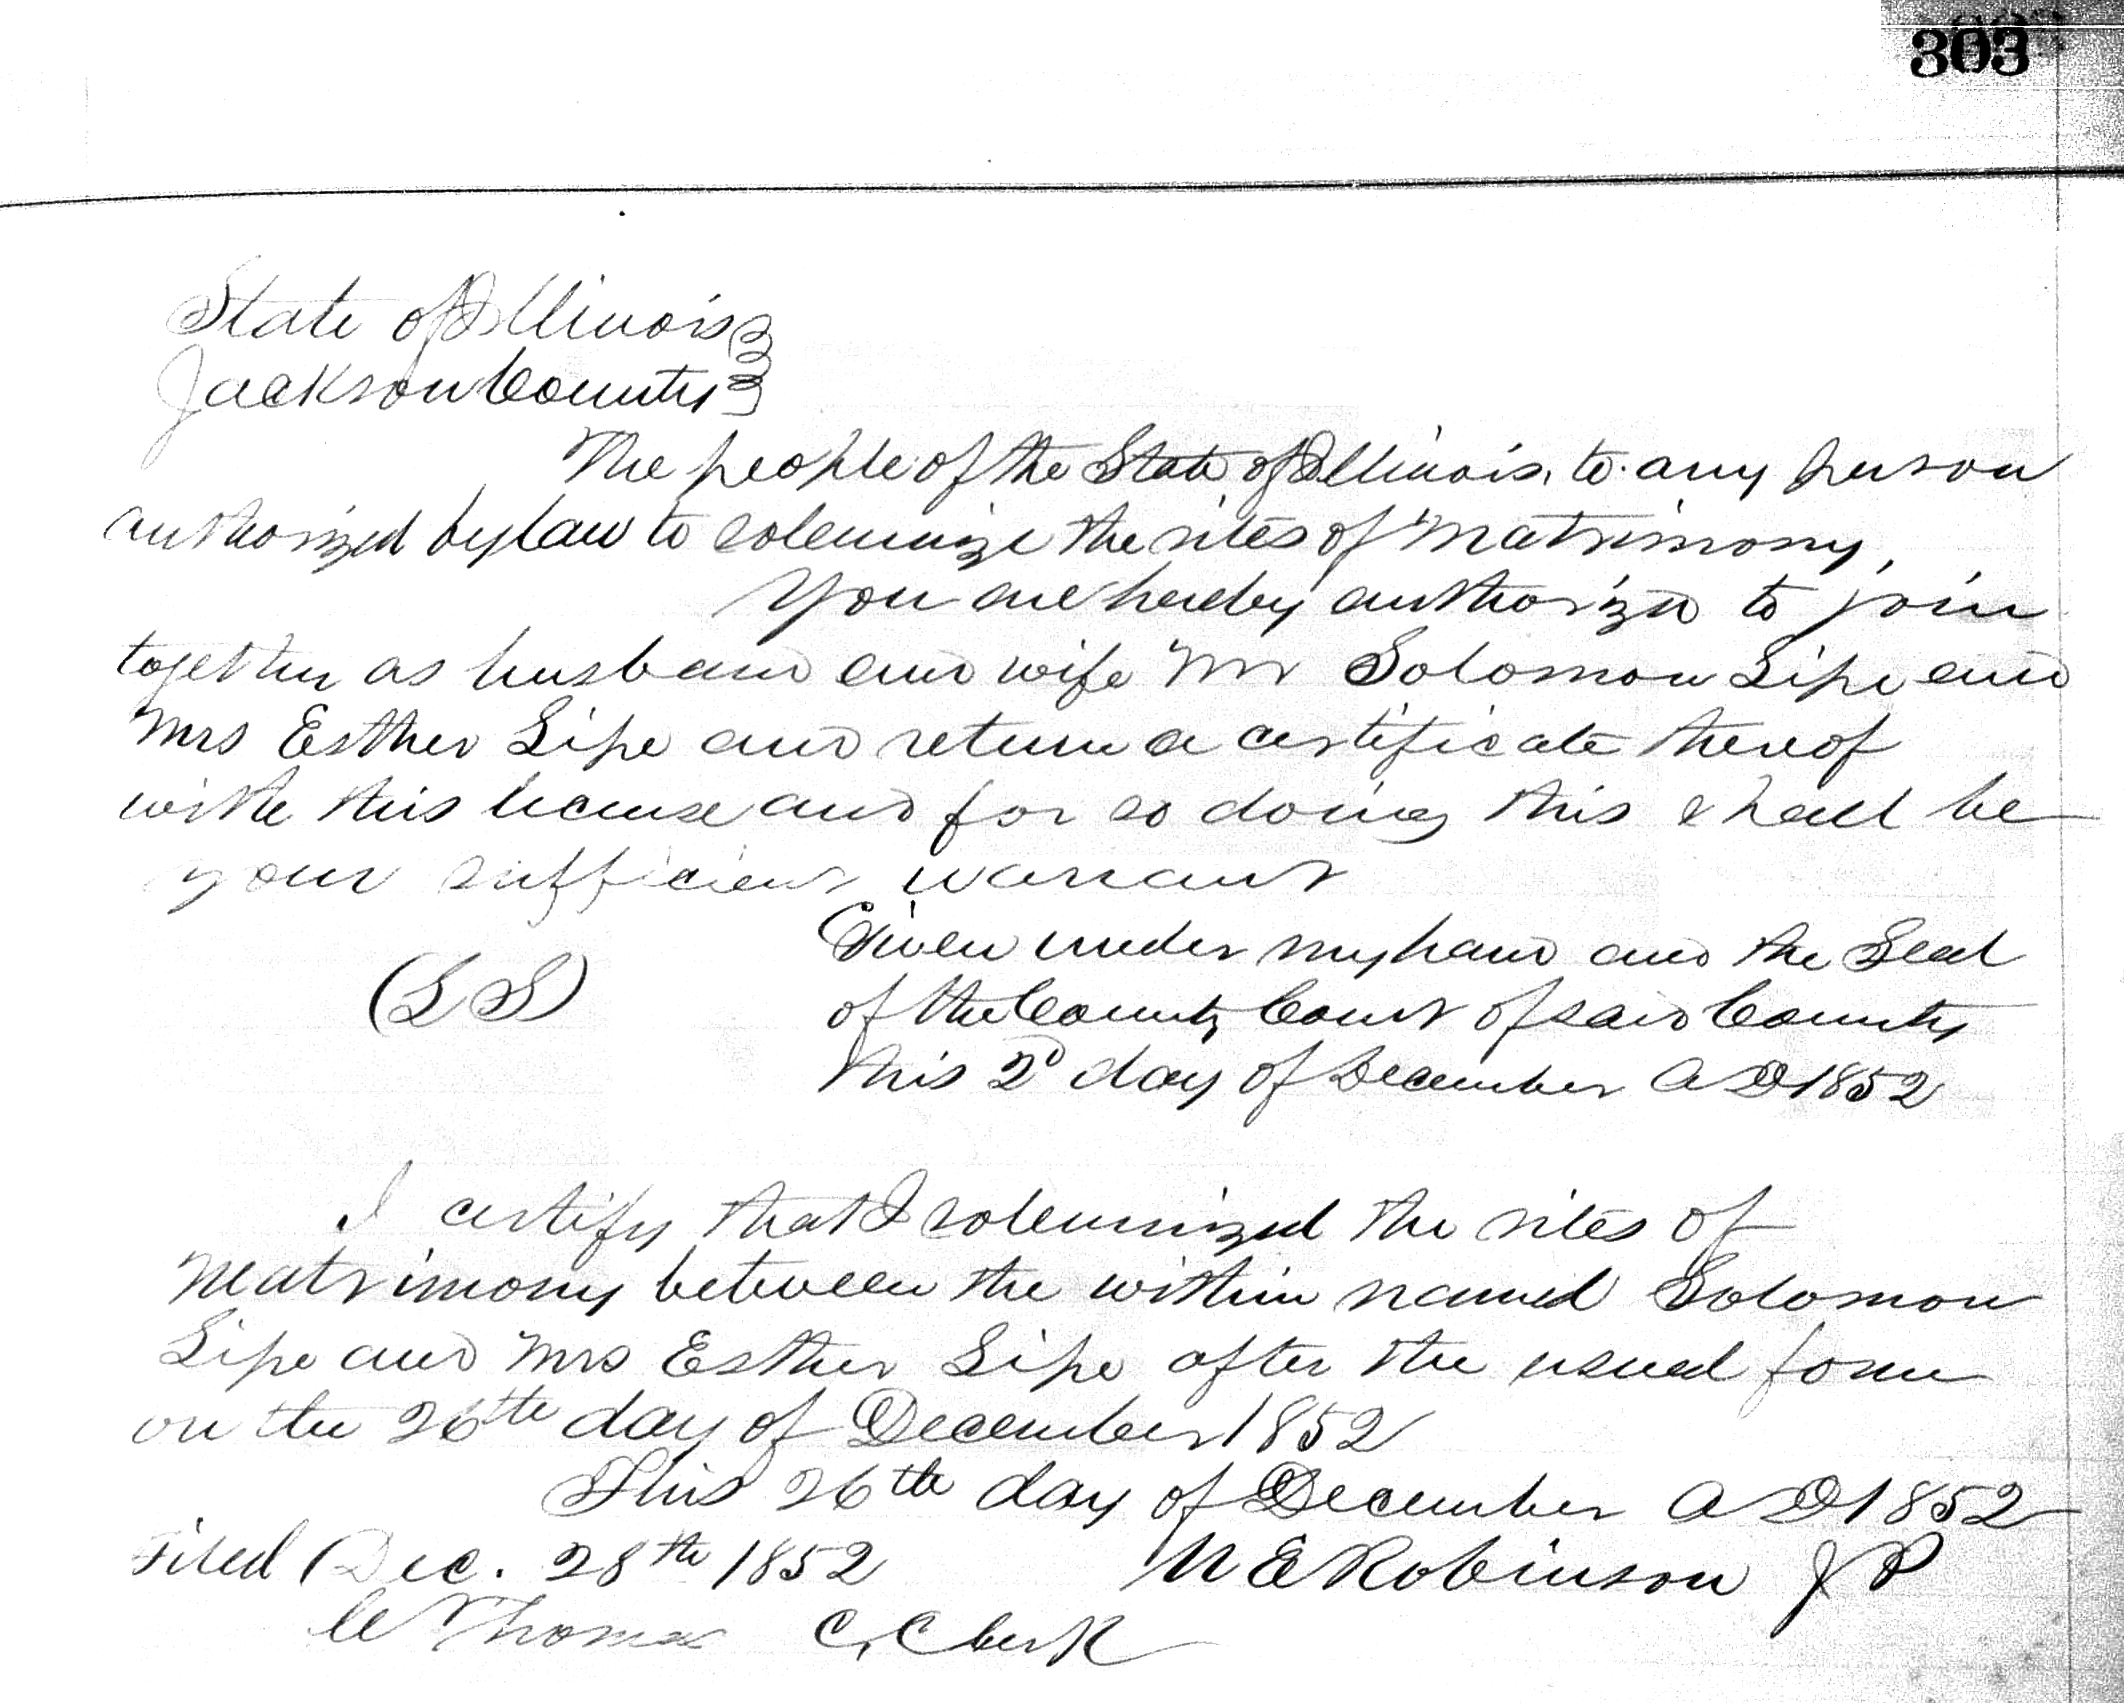 303
State of Illinois
Jackson County
The people of the State of Illinois, to any person
authorized by law to solemnize the rites of Matrimony,
You are hereby authorized to join
together as husband and wife Mr Solomon Lipe and
Mrs Esther Lipe and return a certificate thereof
with this license and for so doing this shall be
your sufficient warrant
Given under my hand and the Seal
(L S) of the County Court of said County
this 2d day of December A D 1852
I certify that I solemnized the rites of
Matrimony between the within named Solomon
Lipe and Mrs Esther Lipe after the usual form
on the 26th day of December 1852
This 26th day of December A D 1852
Filed Dec. 28th 1852 Robinson J P
Thomas C, Clerk